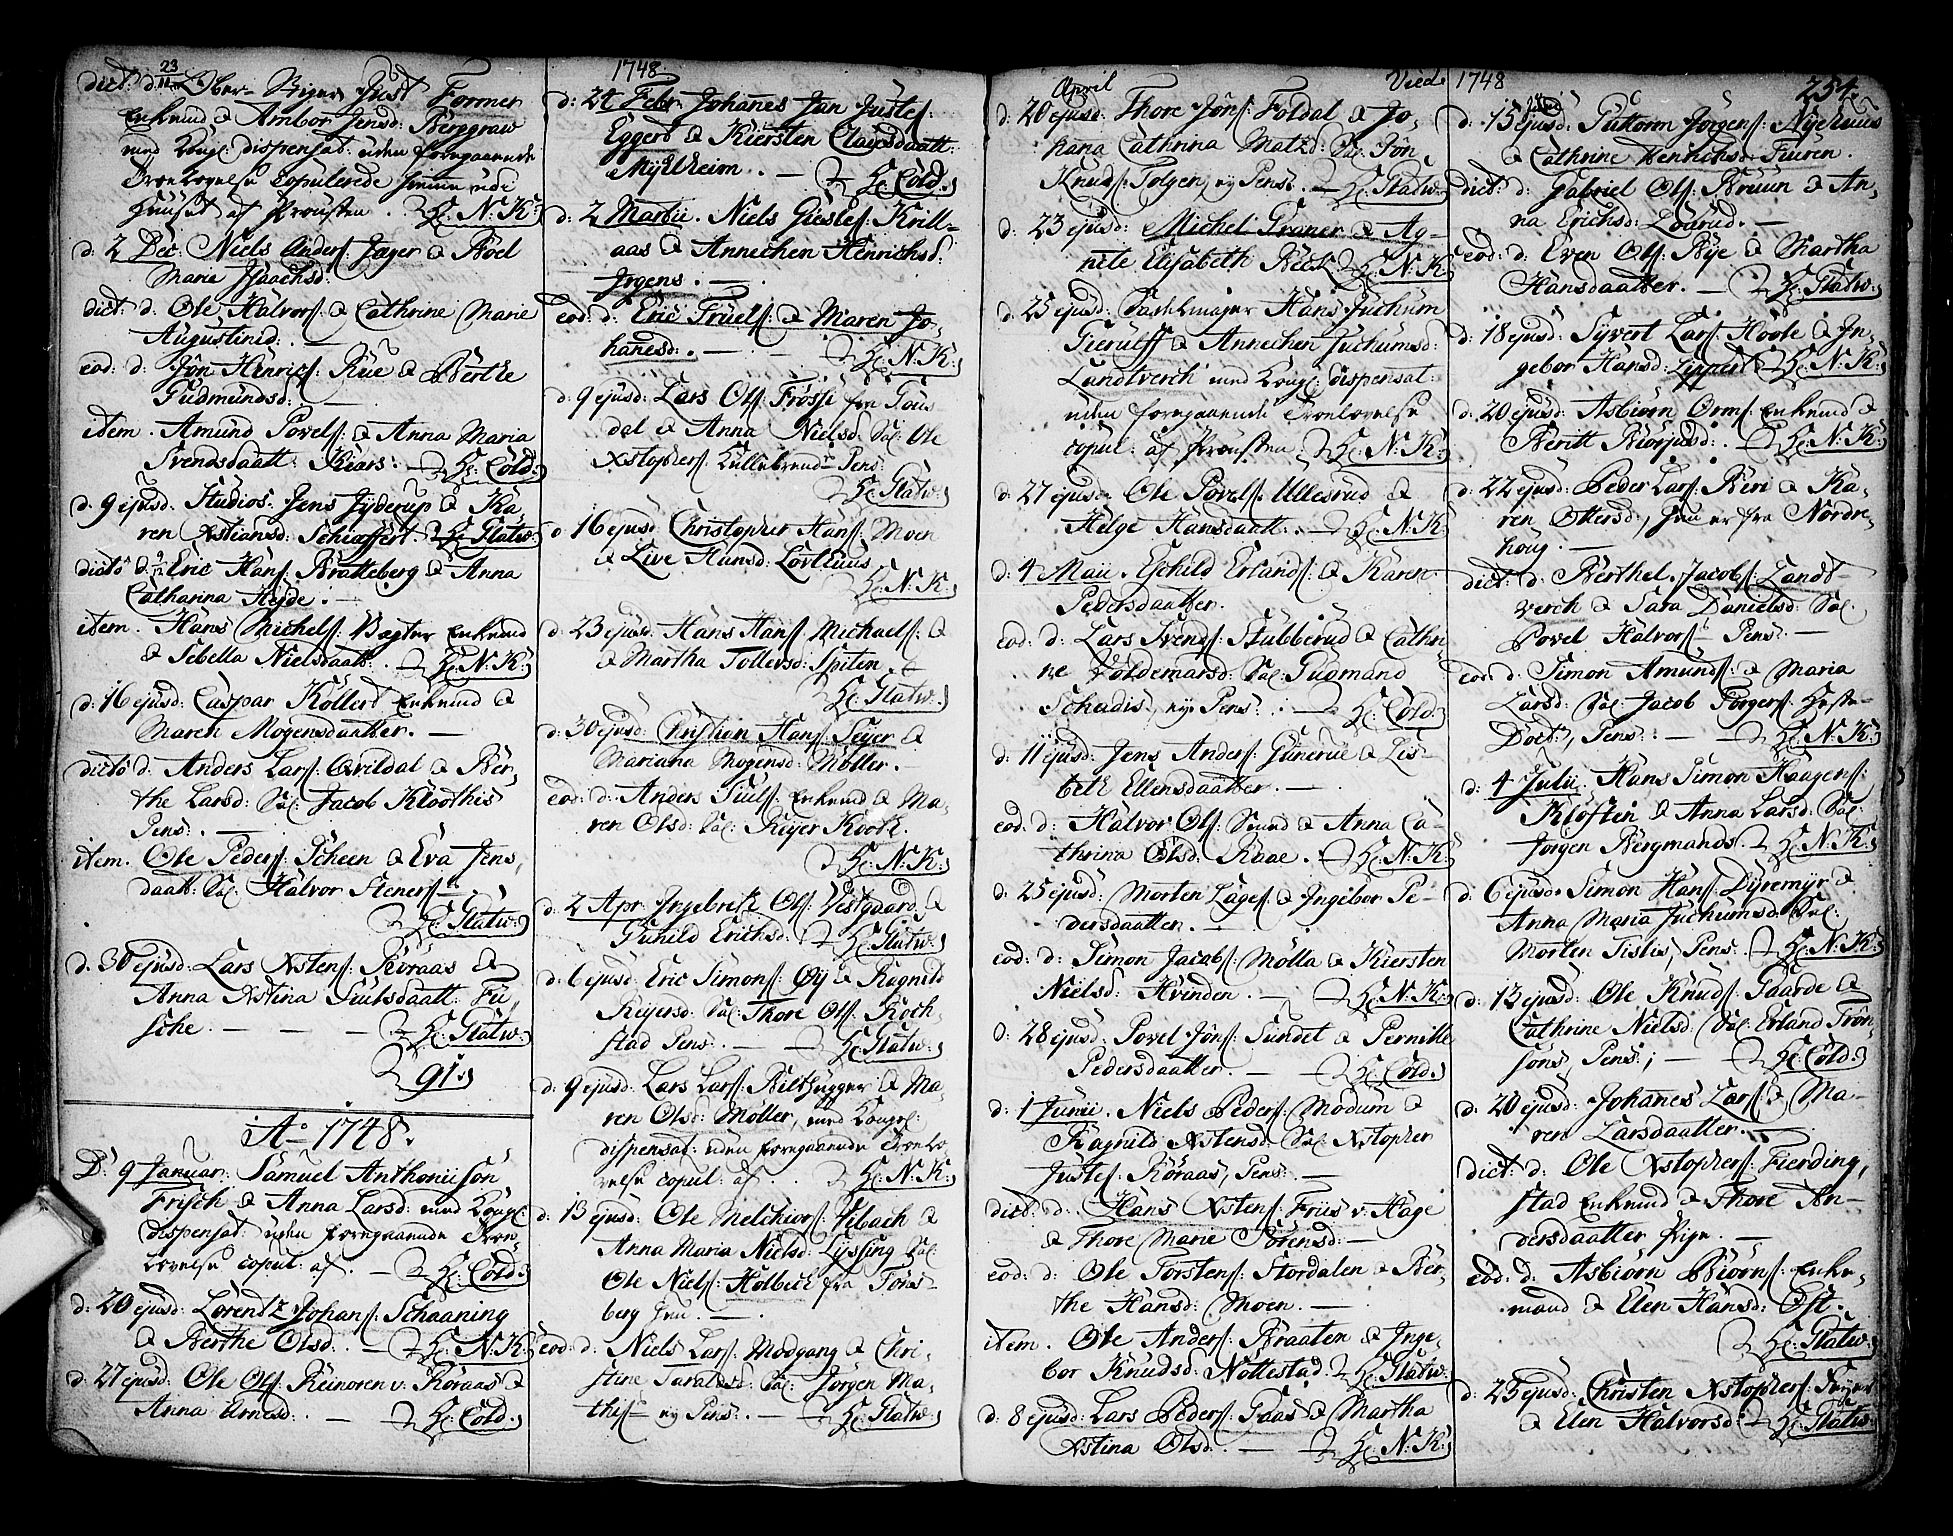 dict: d: 23/11 Ober Just Former
Enkemd & Ambor Jensd: Berggraw
med Kongl: dispensat: uden foregaaende
Troelovelse copulerede hiemme udi
Huuset af Prousten. Hr: N: K:
d: 2 Dec: Niels Anders: Jager & Boel
Marie Isaachsd:
dict: d: Ole Halvors: & Cathrine Marie
Augustinid: —
eod: d: Jön Henrics: Rue & Berthe
Gudmundsd: —
item. Amund Povels: & Anna Maria
Svendsdaatt: Kiars: — Hr: Cold:
d: 9 ejusd: Studios: Jens Jyderup & Ka-
ren Xstiansd: Schiøffert. Hr: Flatw:
dicto d: Eric Hans: Bratteberg & Anna
Catharina Heyde. —
item. Hans Michels: Bagter Enkemd
& Sebella Nielsdaatt. Hr: N: K:
d: 16 ejusd: Caspar Köllerd Enkemd &
Maren Mogensdaatter. —
dicto d: Anders Lars: Qvildal & Ber-
the Larsd: Sal: Jacob Kloothis
Pens: —
item. Ole Peders: Scheen & Eva Jens-
daatt: Sal: Halvor Steners:
Hr: Flatw:
d: 30 ejusd: Lars Xstens: Röraas &
Anna Xstina Juulsdaatt: Fü-
sche — — — Hr: Flatw:
91.
Ao 1748.
D: 9 Januar: Samuel Anthoniison
Frisch & Anna Larsd: med Kongl:
dispensat: uden foregaaende Troe-
lovelse copul: af. — Hr: Cold:
d: 20 ejusd: Lorentz Johans: Schaaning
& Berthe Olsd. — Hr: N: K:
d: 27 ejusd: Ole Ols: Reinoren v: Röraas &
Anna Arnesd: — Hr: Cold:
1748.
d: 24 Febr: Johannes Jan Justes:
Eggers & Kiersten Clausdaatt:
Myhlheim. — Hr: Cold:
d: 2 Martii. Niels Giesles: Krill-
aas & Annichen Henrichsd:
Jrgens. —
eod: d: Eric Truels: & Maren Jo-
hanesd: — Hr: N: K:
d: 9 ejusd: Lars Ols: Frössi fra Tous
dal & Anna Nielsd: Sal: Ole
Xstophers: Hullebrend Pens:
Hr: Flatw:
d: 16 ejusd: Christopher Hans: Moen
& Live Hansd: Lövlhuus
Hr: N: K:
d: 23 ejusd: Hans Hans: Michaels: &
& Martha Tollersd: Spiten.
Hr: Flatw:
d: 30 ejusd: Christian Hans: Feyer &
Mariana Mogensd: Möller.
eod: d: Anders Juuls: Enkemd & Ma-
ren Olsd: Sal: Reyer Kook.
Hr: N: K:
d: 2 Apr: Ingebreth Ols: Vestgaard &
Gunild Erichsd: Hr: Flatw:
d: 6 ejusd: Eric Simons: Öy & Ragnild
Reyersd: Sal: Thore Ols: Koch-
stad Pens: — Hr: Flatw:
d: 9 ejusd: Lars Lars: Bilthugger & Ma-
ren Olsd: Möller, med Kongl:
dispensat: uden foregaaende Troelo-
velse copul: af. Hr: N: K:
d: 13 ejusd: Ole Melchiors: Vibach &
Anna Maria Nielsd: Lyssing Sal:
Ole Niels: Holbech fra Töns-
berg hun. —
eod: d: Niels Lars: Modgang & Chri-
stine Taraldsd: Sal: Jörgen Ma-
thes: ny Pens: — Hr: Flatw:
April Viede 1748 254.
d: 20 ejusd: Thore Jöns: Foldal & Jo-
hana Cathrina Matzd: Sal: Jön
Knuds: Tolgen, ny Pens: — Hr: Flatw:
d: 23 ejusd: Michel Graner & Ag-
nete Elisabeth Beck Hr: N: K:
d: 25 ejusd: Sadelmager Hans Juchum
Gierulff & Annichen Juchumsd:
Landtverch med Kongl: dispensat:
uden foregaaende Troelovelse
copul: af Prousten. Hr: N: K:
d: 27 ejusd: Ole Povels: Ullesrud &
Helge Hansdaatt. — Hr: N: K:
d: 4 Maii. Eschild Erlands: & Karen
Pedersdaatter.
eod: d: Lars Svends: Stubberud & Cathri
ne Voldemarsd: Sal: Gudmand
Schadis, ny Pens: — Hr: Cold:
d: 11 ejusd: Jens Anders: Gunerue & Lis-
beth Ellensdaatter. —
eod: d: Halvor Ols: Smed & Anna Ca-
thrina Olsd: Raae. — Hr: N: K:
d: 25 ejusd: Morten Lages: & Ingebor Pe-
dersdaatter. —
eod: d: Simon Jacobs: Mölla & Kiersten
Nielsd: Hvinden. — Hr: N: K:
d: 28 ejusd: Povel Jöns: Sundet & Pernille
Pedersdaatter. — Hr: Cold:
d: 1 Junii. Niels Peders: Modum &
Ragnild Xstensd: Sal: Xstopher
Justes: Röraas, Pens: —
dict: d: Hans Xstens: Friis v: Hage
& Thore Marie Sörensd: —
eod: d: Ole Torstens: Stordalen & Ber-
the Hansd: Moen. —
item. Ole Anders: Braaten & Inge-
bor Knudsd: Nottestad Hr: Flatw:
d: 8 ejusd: Lars Peders: Gaas & Martha
Xstina Olsd: — Hr: N: K:
d: 15 ejusd: Guttorm Jörgens: Nyehuus
& Cathrine Henrichsd: Fuuren.
dict: d: Gabriel Ols: Bruun & An-
na Erichsd: Loerud. —
eod: d: Even Ols: Rye & Martha
Hansdaatter. — Hr: Flatw:
d: 18 ejusd: Syvert Lars: Hoole & In-
gebor Hansd: Lippert Hr: N: K:
d: 20 ejusd: Asbiörn Orms: Enkemd &
Beritt Biörjusd: Hr: N: K:
d: 22 ejusd: Peder Lars: Beri & Ka-
ren Ottersd: hun er fra Nordre-
houg. —
dict: d: Berthel Jacobs: Landt-
verch & Sara Danielsd: Sal:
Povel Halvors: Pens: —
eod: d: Simon Amunds: & Maria
Larsd: Sal: Jacob Torgers: Heste-
Doct:, Pens: — Hr: N: K:
d: 4 Julii. Hans Simon Haagens:
Klöften & Anna Larsd: Sal:
Jörgen Bergmands. Hr: N: K:
d: 6 ejusd: Simon Hans: Dyremyr &
Anna Maria Juchumsd: Sal:
Morten Tislis, Pens: Hr: N: K:
d: 13 ejusd: Ole Knuds: Gaarde &
Cathrine Nielsd: Sal: Erland Trön-
sons, Pens:, — Hr: Cold:
d: 20 ejusd: Johannes Lars: & Ma-
ren Larsdaatter. —
dict: d: Ole Xstophers: Fierding-
stad Enkemd & Thore An-
dersdaatter Pige. —
eod: d: Asbiörn Biörns: Enke-
mand & Elen Hansd: Öst.
Hr: Flatw:
d: 23 ejusd: Christen Xstophers: Feyer
& Elen Halvorsd: Hr: Flatw: